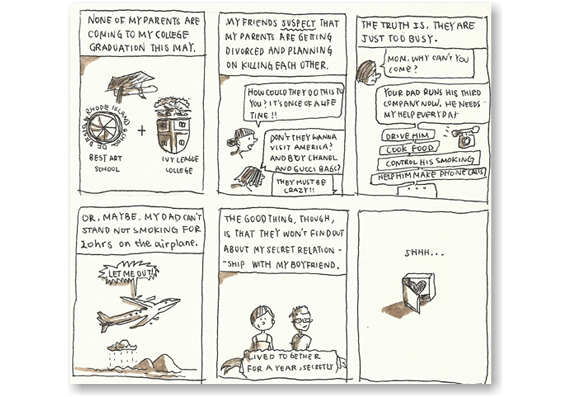 NONE OF MY PARENTS ARE
COMING TO MY COLLEGE
GRADUATION THIS MAY.
RHODE ISLAND SCHOOL OF DESIGN
+
BEST ART
SCHOOL
IVY LEAGUE
COLLEGE
MY FRIENDS SUSPECT THAT
MY PARENTS ARE GETTING
DIVORCED AND PLANNING
ON KILLING EACH OTHER.
HOW COULD THEY DO THIS TO
YOU? IT'S ONCE OF A LIFE
TIME!!
DON'T THEY WANNA
VISIT AMERICA?
AND BUY CHANEL
AND GUCCI BAGS?
THEY MUST BE
CRAZY!!
THE TRUTH IS. THEY ARE
JUST TOO BUSY.
MOM. WHY CAN'T YOU
COME?
YOUR DAD RUNS HIS THIRD
COMPANY NOW. HE NEEDS
MY HELP EVERYDAY
DRIVE HIM
COOK FOOD
CONTROL HIS SMOKING
HELP HIM MAKE PHONE CALLS
...
OR. MAYBE. MY DAD CAN'T
STAND NOT SMOKING FOR
20hrs on the airplane.
LET ME OUT!
THE GOOD THING, THOUGH,
IS THAT THEY WON'T FIND OUT
ABOUT MY SECRET RELATION-
-SHIP WITH MY BOYFRIEND.
LIVED TOGETHER
FOR A YEAR, SECRETLY
SHHH...